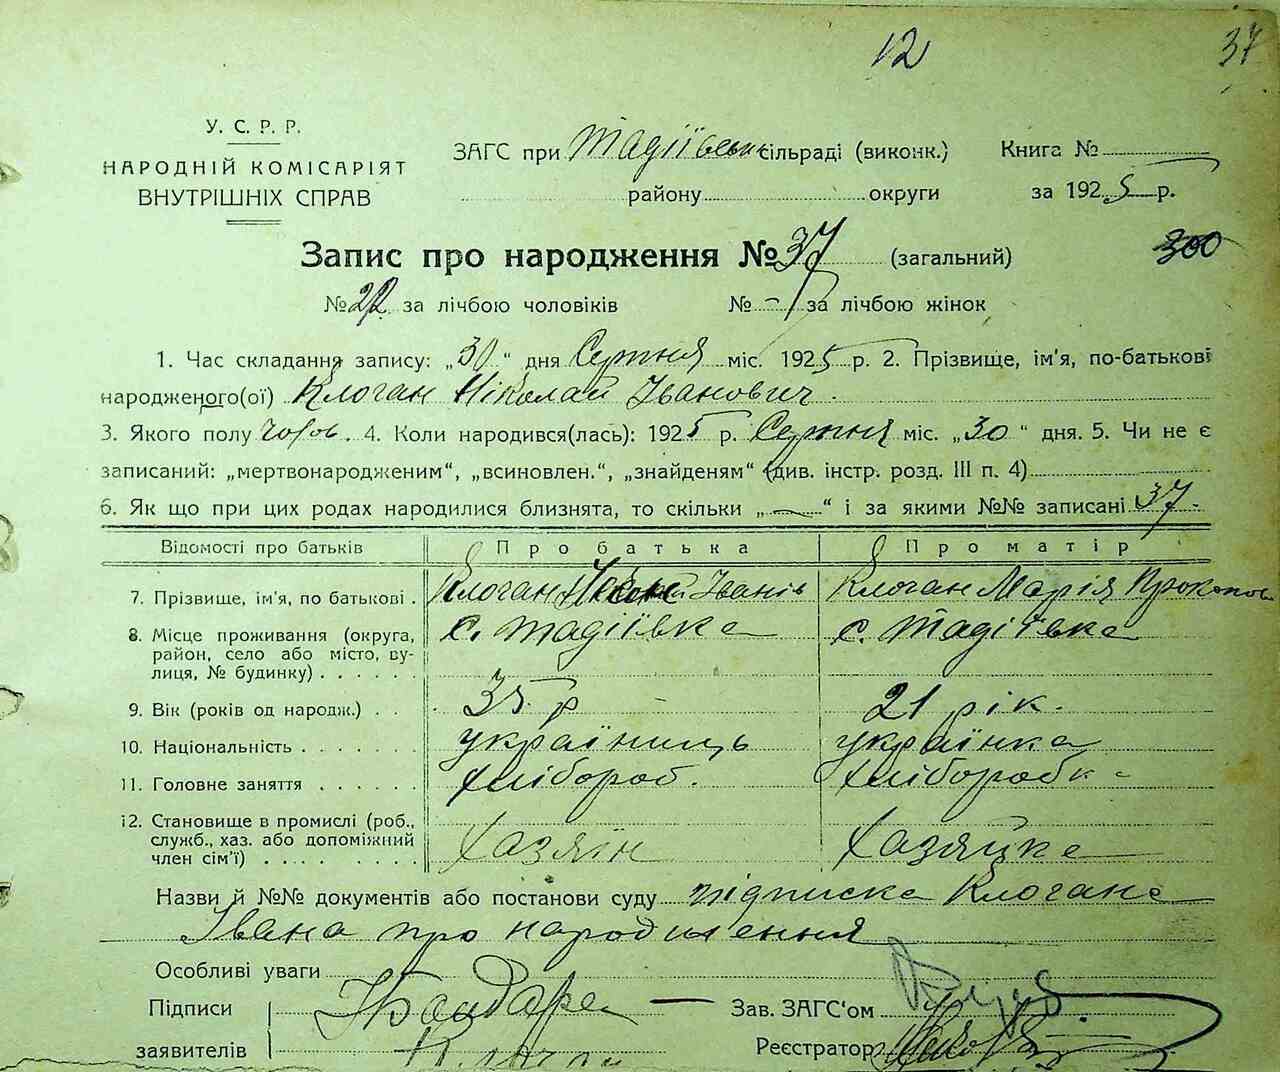 12
37
У. С. Р. Р.
НАРОДНІЙ КОМІСАРІЯТ
ВНУТРІШНІХ СПРАВ
ЗАГС при Тадіївськ сільраді (виконк.) Книга №
району округи за 1925 р.
Запис про народження № 37 (загальний) 300
№ 22 за лічбою чоловіків № - за лічбою жінок
1. Час складання запису: „30" дня Серпня міс. 1925 р. 2. Прізвище, ім'я, по-батькові
народженого(ої) Клоган Ніколай Іванович.
3. Якого полу чолов. 4. Коли народився(лась): 1925 р. Серпня міс. „30" дня. 5. Чи не є
записаний: „мертвонародженим", „всиновлен.", „знайденям" (див. інстр. розд. III п. 4)
6. Як що при цих родах народилися близнята, то скільки „—" і за якими №№ записані 37.
Відомості про батьків Про батька Про матір
7. Прізвище, ім'я, по батькові . Клоган Іванів Клоган Марія Прокопов
8. Місце проживання (округа, с. Тадіївка с. Тадіївка
район, село або місто, ву-
лиця, № будинку) . . . . . .
9. Вік (років од народж.) . . 35 р 21 рік.
10. Національність . . . . . . . українець українка
11. Головне заняття . . . . . . хлібороб. хліборобка
12. Становище в промислі (роб., Хазяїн Хазяйка
служб., хаз. або допоміжний
член сім'ї) . . . . . . . .
Назви й №№ документів або постанови суду підписка Клогана
Івана про народження
Особливі уваги
Підписи Бондаре Зав. ЗАГС'ом
заявителів Клоган Реєстратор